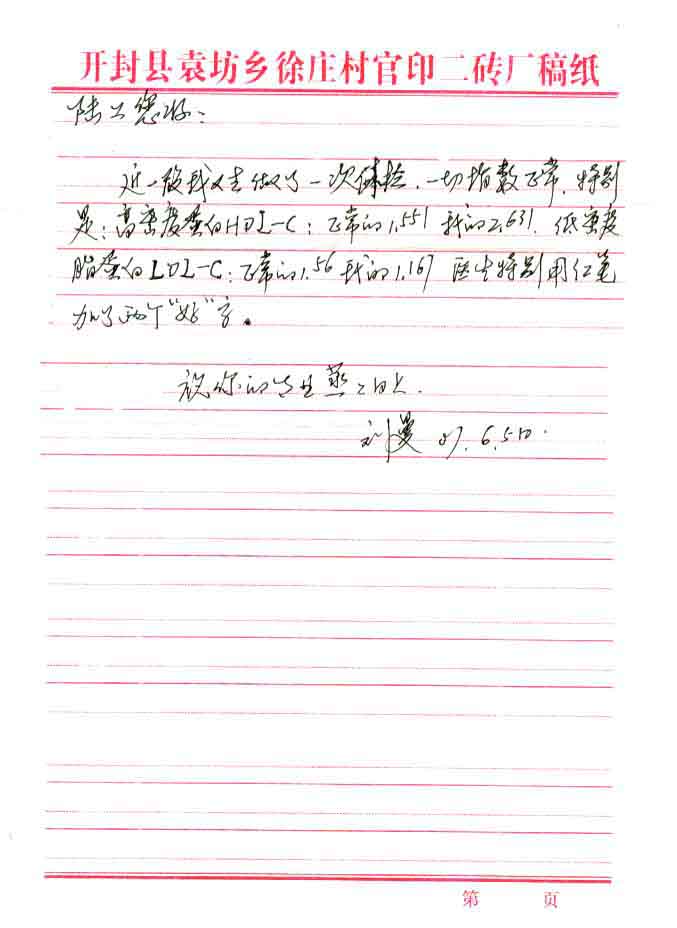 开封县袁坊乡徐庄村官印二砖厂稿纸
陆工您好：
近一段我又去做了一次体检，一切指数正常，特别
是：高密度蛋白HDL-C：正常的1.551 我的2.631，低密度
脂蛋白LDL-C：正常的1.56 我的1.167 医生特别用红笔
加了两个“好”字。
祝你的生意蒸蒸日上．
刘 07.6.5日.
第 页